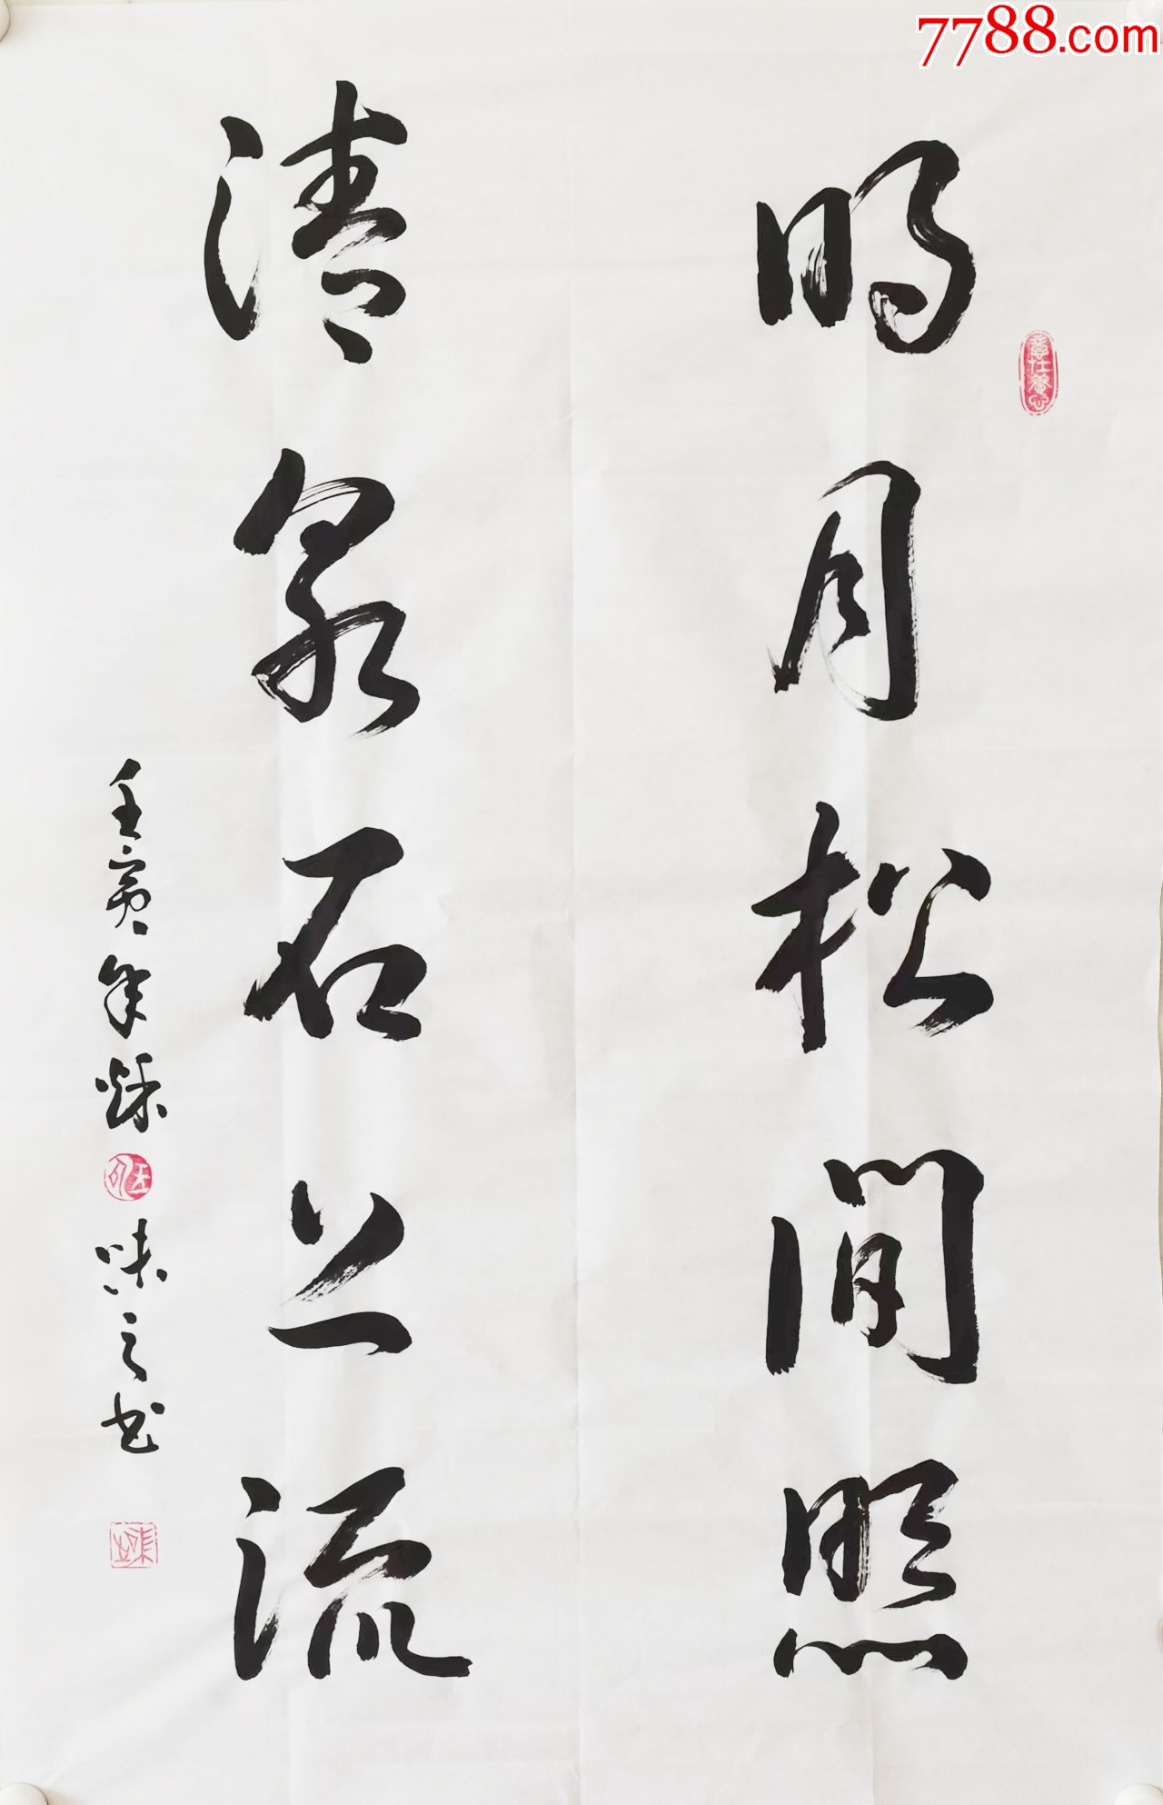 7788.com
明月松間照
清泉石上流
壬寅年秋味之书